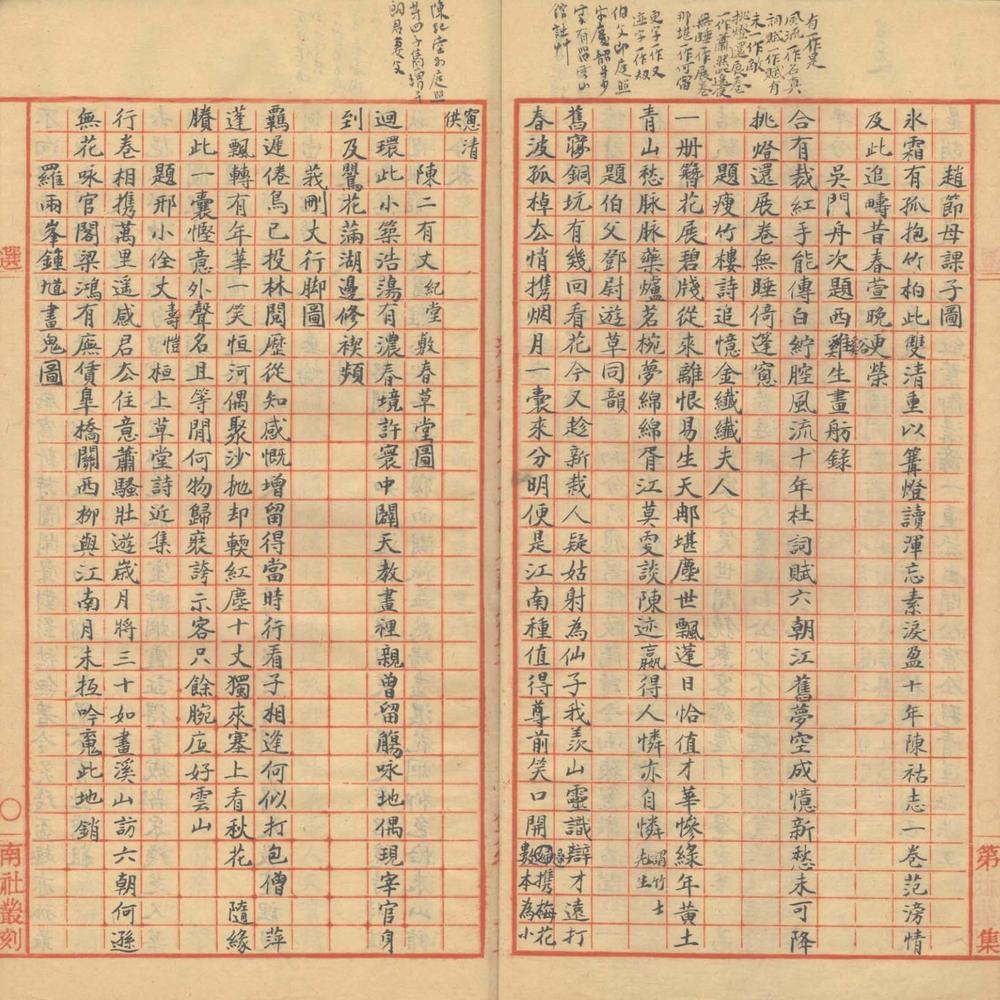 有一作是
風流一作名真
詞賦一作賦有
未一作敢
挑燈還展卷
一作蕭然遙夜
無睡一作展卷
那堪一作何當
更字一作又
迹字一作劫
伯父印庭照
館社艸
趙節母課子圖
氷霜有孤抱竹柏此雙清重以篝燈讀渾忘素淚盈十年陳祜志一卷范滂情
及此追疇昔春萱晚更榮
吳門舟次題西谿生畫舫錄
合有裁紅手能傳白紵腔風流十年杜詞賦六朝江舊夢空成憶新愁未可降
挑燈還展卷無睡倚蓬窻
題瘦竹樓詩追憶金纖纖夫人
一册簪花展碧牋從來離恨易生天那堪塵世飄蓬日恰值才華慘綠年黃土
青山愁脉脉藥爐茗椀夢綿綿胥江莫更談陳迹贏得人憐亦自憐謂竹士先生
題伯父鄧尉遊草同韻
舊夢銅坑有幾回看花今又趁新栽人疑姑射為仙子我羨山靈識辯才遠打
春波孤棹去悄携烟月一囊來分明便是江南種值得尊前笑口開歸携梅花數本為小
窻清供
陳紀堂名庭照
陳二有丈紀堂敷春草堂圖
迴環此小築浩蕩有濃春境許寰中闢天教畫裡親曾留觴咏地偶現宰官身
到及鶯花滿湖邊修禊頻
莪剛丈行脚圖
羈遲倦鳥已投林閱歷從知感慨增留得當時行看子相逢何似打包僧萍
蓬飄轉有年華一笑恒河偶聚沙抛却輭紅塵十丈獨來塞上看秋花隨緣
賸此一囊慳意外聲名且等閒何物歸裝誇示客只餘腕底好雲山
題邢小佺丈壽愷桓上草堂詩近集
行卷相携萬里遥感君去住意蕭騷壯遊歲月將三十如畫溪山訪六朝何遜
無花咏官閣梁鴻有廡賃臯橋關西柳與江南月未抵吟魂此地銷
羅兩峯鍾馗畫鬼圖
選
南社叢刻
第
集